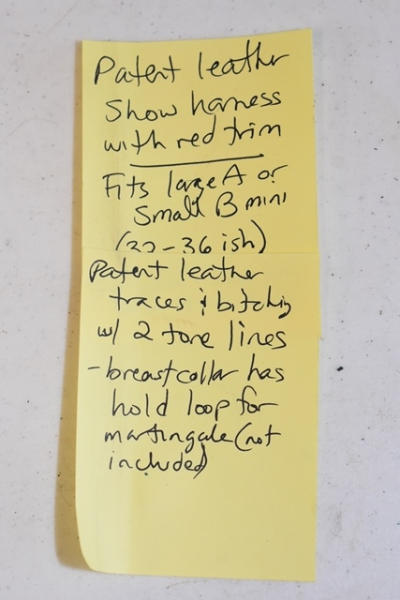 Patent leather
Show harness
with red trim
Fits large A or
Small B mini
(32-36 ish)
Patent leather
traces & bitching
w/ 2 tone lines
- breastcollar has
hold loop for
martingale (not
included)